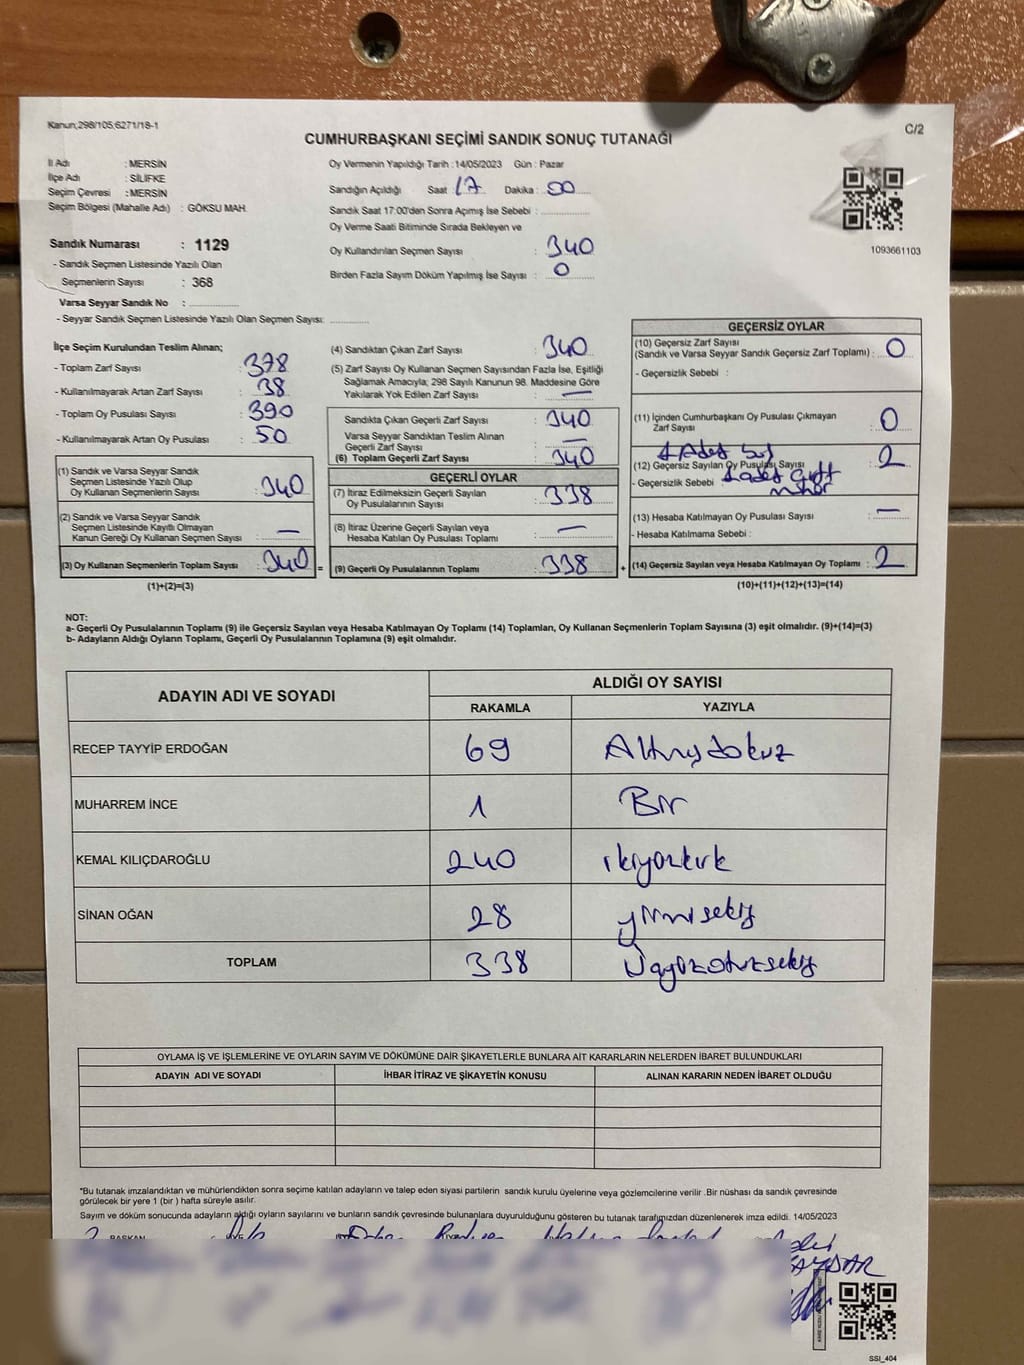 Kanun;298/105,6271/18-1
C/2
CUMHURBAŞKANI SEÇİMİ SANDIK SONUÇ TUTANAĞI
İl Adı : MERSİN
İlçe Adı : SİLİFKE
Seçim Çevresi : MERSİN
Seçim Bölgesi (Mahalle Adı) : GÖKSU MAH.
Oy Vermenin Yapıldığı Tarih : 14/05/2023 Gün : Pazar
Sandığın Açıldığı Saat : 17 Dakika : 00
Sandık Saat 17:00'den Sonra Açımış İse Sebebi :
Oy Verme Saati Bitiminde Sırada Bekleyen ve
Oy Kullandırılan Seçmen Sayısı : 340
Birden Fazla Sayım Döküm Yapılmış İse Sayısı : 0
1093661103
Sandık Numarası : 1129
- Sandık Seçmen Listesinde Yazılı Olan
Seçmenlerin Sayısı : 368
Varsa Seyyar Sandık No :
- Seyyar Sandık Seçmen Listesinde Yazılı Olan Seçmen Sayısı:
İlçe Seçim Kurulundan Teslim Alınan;
- Toplam Zarf Sayısı : 378
- Kullanılmayarak Artan Zarf Sayısı : 38
- Toplam Oy Pusulası Sayısı : 390
- Kullanılmayarak Artan Oy Pusulası : 50
(1) Sandık ve Varsa Seyyar Sandık
Seçmen Listesinde Yazılı Olup
Oy Kullanan Seçmenlerin Sayısı : 340
(2) Sandık ve Varsa Seyyar Sandık
Seçmen Listesinde Kayıtlı Olmayan
Kanun Gereği Oy Kullanan Seçmen Sayısı : —
(3) Oy Kullanan Seçmenlerin Toplam Sayısı : 340 =
(1)+(2)=(3)
(4) Sandıktan Çıkan Zarf Sayısı : 340
(5) Zarf Sayısı Oy Kullanan Seçmen Sayısından Fazla İse, Eşitliği
Sağlamak Amacıyla; 298 Sayılı Kanunun 98. Maddesine Göre
Yakılarak Yok Edilen Zarf Sayısı : —
Sandıkta Çıkan Geçerli Zarf Sayısı : 340
Varsa Seyyar Sandıktan Teslim Alınan
Geçerli Zarf Sayısı : —
(6) Toplam Geçerli Zarf Sayısı : 340
GEÇERLİ OYLAR
(7) İtiraz Edilmeksizin Geçerli Sayılan
Oy Pusulalarının Sayısı : 338
(8) İtiraz Üzerine Geçerli Sayılan veya
Hesaba Katılan Oy Pusulası Toplamı : —
(9) Geçerli Oy Pusulalarının Toplamı : 338 +
GEÇERSİZ OYLAR
(10) Geçersiz Zarf Sayısı
(Sandık ve Varsa Seyyar Sandık Geçersiz Zarf Toplamı) : 0
- Geçersizlik Sebebi :
(11) İçinden Cumhurbaşkanı Oy Pusulası Çıkmayan
Zarf Sayısı : 0
1 Adet boş
(12) Geçersiz Sayılan Oy Pusulası Sayısı : 2
- Geçersizlik Sebebi : 1 adet çift
mühür
(13) Hesaba Katılmayan Oy Pusulası Sayısı : —
- Hesaba Katılmama Sebebi :
(14) Geçersiz Sayılan veya Hesaba Katılmayan Oy Toplamı : 2
(10)+(11)+(12)+(13)=(14)
NOT:
a- Geçerli Oy Pusulalarının Toplamı (9) ile Geçersiz Sayılan veya Hesaba Katılmayan Oy Toplamı (14) Toplamları, Oy Kullanan Seçmenlerin Toplam Sayısına (3) eşit olmalıdır. (9)+(14)=(3)
b- Adayların Aldığı Oyların Toplamı, Geçerli Oy Pusulalarının Toplamına (9) eşit olmalıdır.
ADAYIN ADI VE SOYADI
ALDIĞI OY SAYISI
RAKAMLA YAZIYLA
RECEP TAYYİP ERDOĞAN 69 Altmışdokuz
MUHARREM İNCE 1 Bir
KEMAL KILIÇDAROĞLU 240 ikiyüzkırk
SİNAN OĞAN 28 yirmisekiz
TOPLAM 338 Üçyüzotuzsekiz
OYLAMA İŞ VE İŞLEMLERİNE VE OYLARIN SAYIM VE DÖKÜMÜNE DAİR ŞİKAYETLERLE BUNLARA AİT KARARLARIN NELERDEN İBARET BULUNDUKLARI
ADAYIN ADI VE SOYADI İHBAR İTİRAZ VE ŞİKAYETİN KONUSU ALINAN KARARIN NEDEN İBARET OLDUĞU
*Bu tutanak imzalandıktan ve mühürlendikten sonra seçime katılan adayların ve talep eden siyasi partilerin sandık kurulu üyelerine veya gözlemcilerine verilir .Bir nüshası da sandık çevresinde
görülecek bir yere 1 (bir ) hafta süreyle asılır.
Sayım ve döküm sonucunda adayların aldığı oyların sayılarını ve bunların sandık çevresinde bulunanlara duyurulduğunu gösteren bu tutanak tarafımızdan düzenlenerek imza edildi. 14/05/2023
BAŞKAN
SSI_404